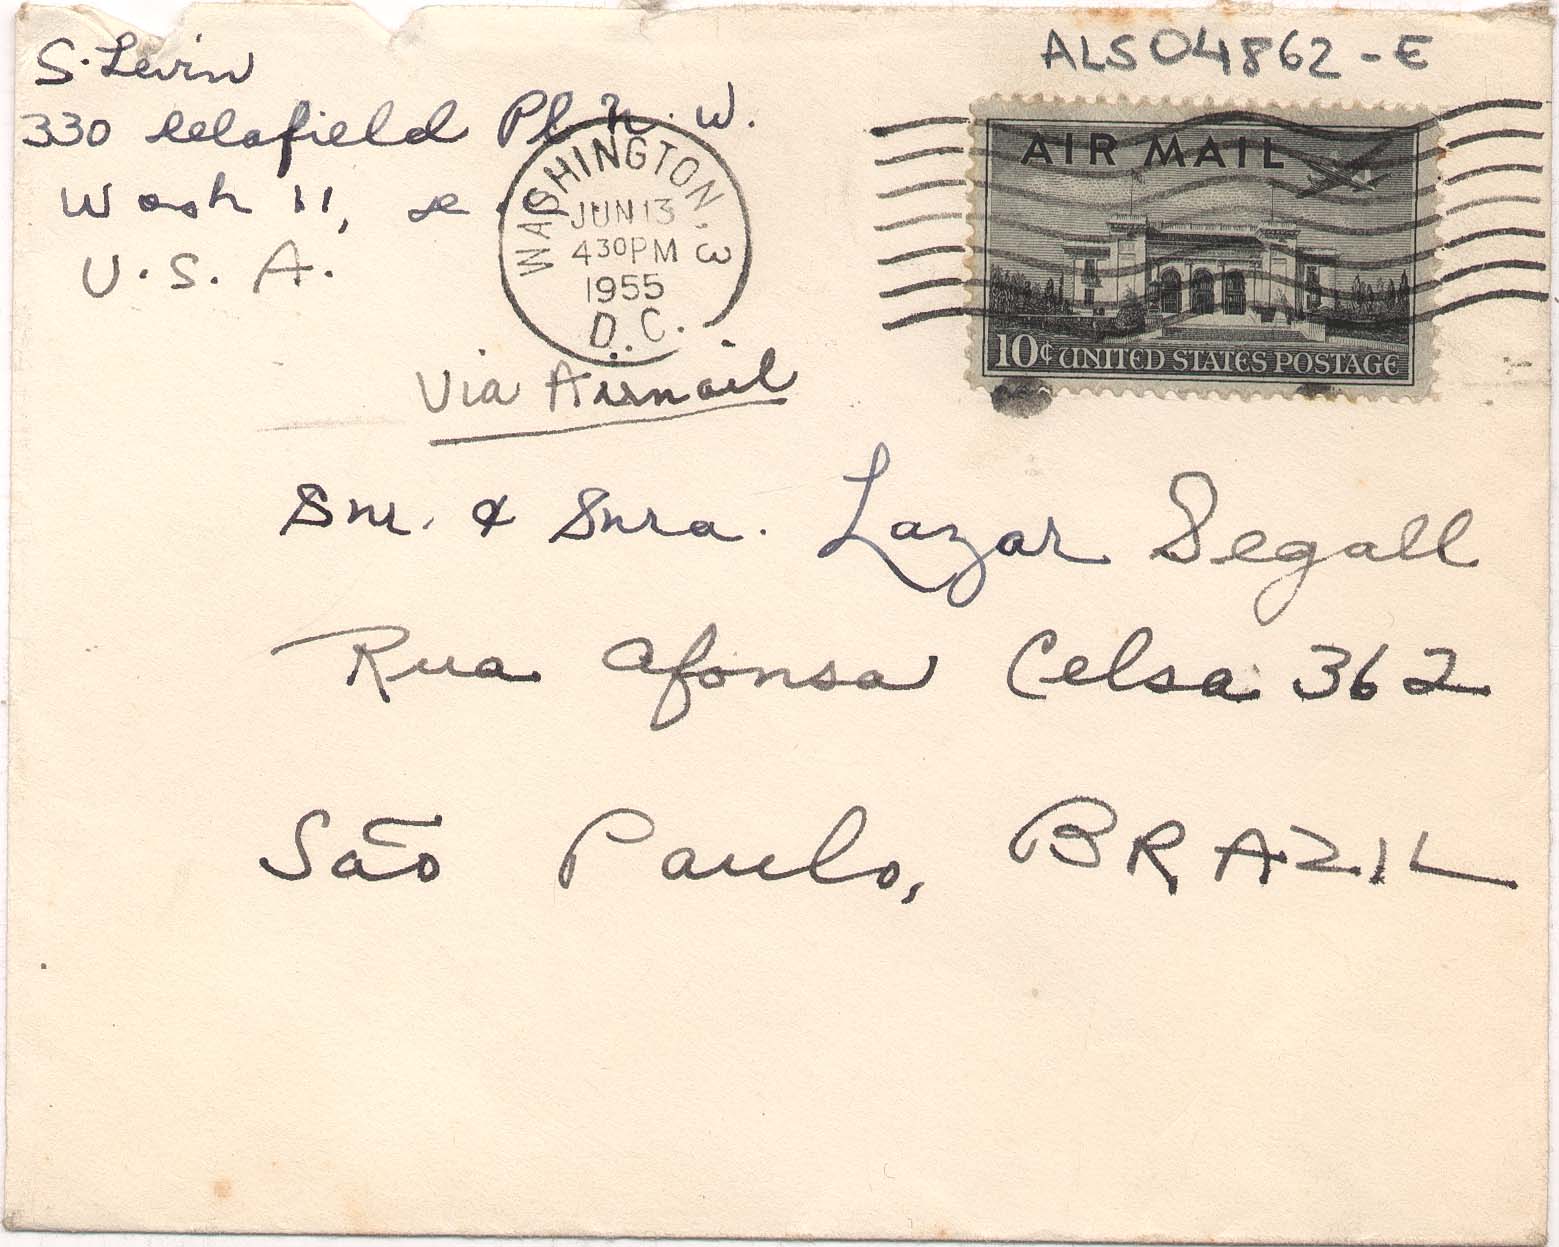 S. Levin
330 Delafield Pl. N. W.
Wash 11, D.C.
U. S. A.
ALS04862-E
WASHINGTON, 3
JUN 13
430 PM
1955
D. C.
AIR MAIL
10¢ UNITED STATES POSTAGE
Via Airmail
Snr. & Snra. Lazar Segall
Rua Afonsa Celsa 362
São Paulo, BRAZIL